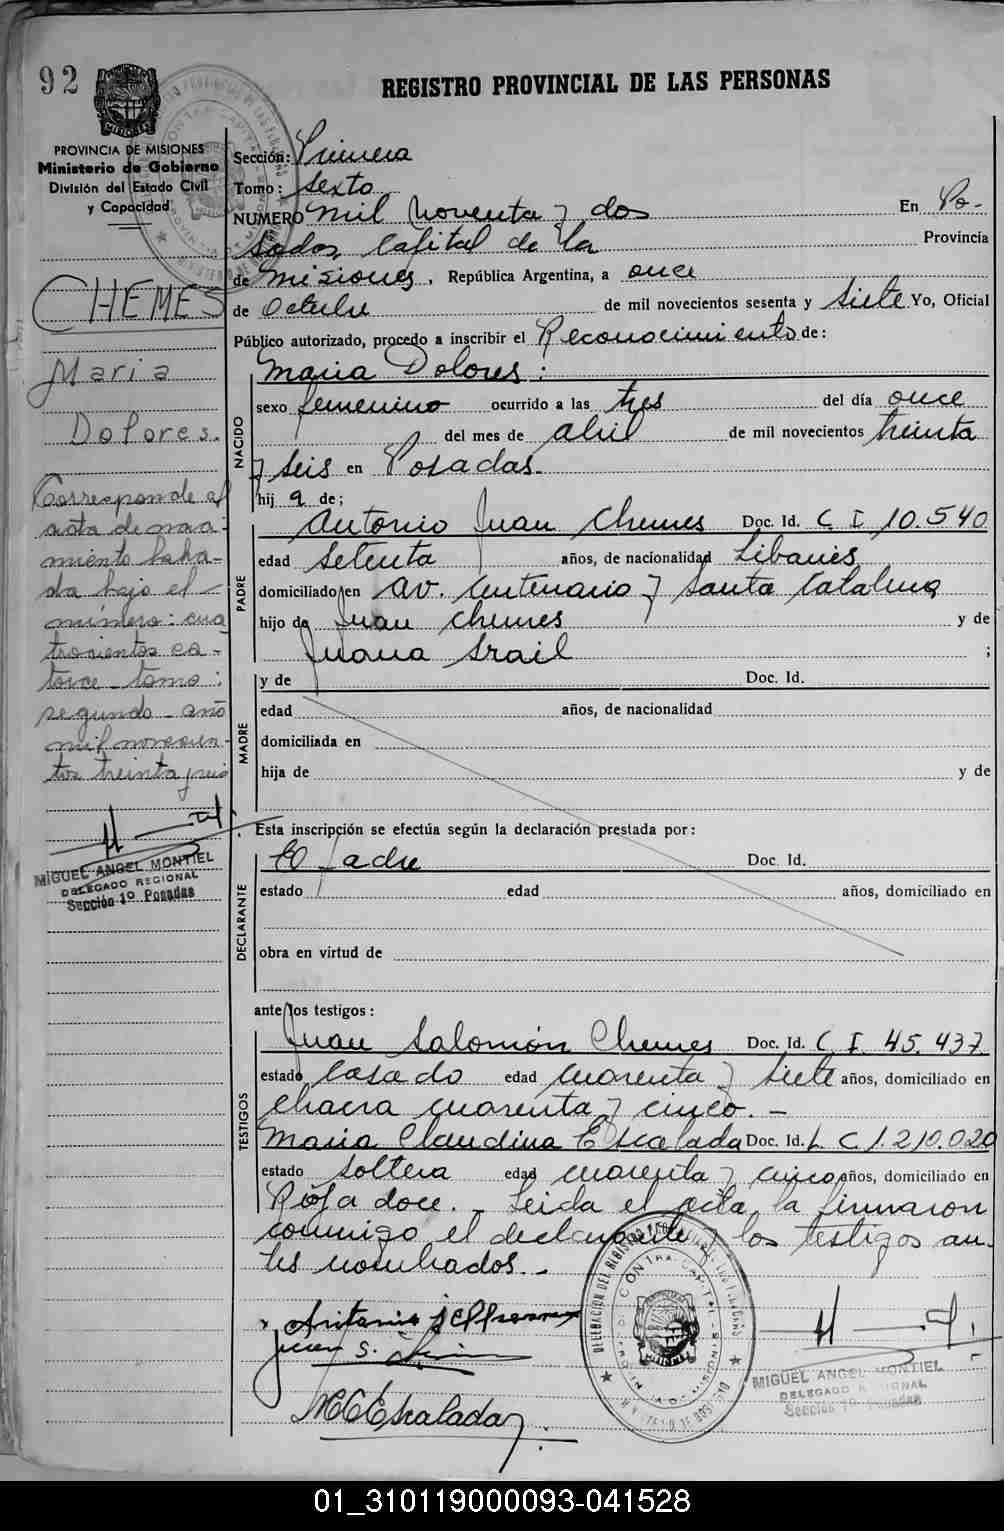 92
REGISTRO PROVINCIAL DE LAS PERSONAS
PROVINCIA DE MISIONES
Ministerio de Gobierno
División del Estado Civil
y Capacidad
CHEMES
Maria
Dolores.
Corresponde al
acta de naci-
miento laba-
da bajo el
número: cua
trocientos ca-
torce tomo:
segundo año
mil novecien-
tos treinta y seis
MIGUEL ANGEL MONTIEL
DELEGADO REGIONAL
Sección 1º Posadas
Sección: Primera
Tomo: Sexto
NUMERO Mil Noventa y dos En Po-
sadas, Capital de la Provincia
de Misiones, República Argentina, a once
de Octubre de mil novecientos sesenta y Siete Yo, Oficial
Público autorizado, procedo a inscribir el Reconocimiento de:
NACIDO
Maria Dolores:
sexo femenino ocurrido a las tres del día once
del mes de abril de mil novecientos treinta
y seis en Posadas.
hij a de;
PADRE
Antonio Juan Chemes Doc. Id. C. I 10.540
edad Setenta años, de nacionalidad Libanés
domiciliado en Av. Centenario y Santa Catalina
hijo de Juan Chemes y de
Juana Srail ;
MADRE
y de Doc. Id.
edad años, de nacionalidad
domiciliada en
hija de y de
Esta inscripción se efectúa según la declaración prestada por:
DECLARANTE
El Padre Doc. Id.
estado edad años, domiciliado en
obra en virtud de
ante los testigos:
TESTIGOS
Juan Salomón Chemes Doc. Id. C. I. 45.437
estado Casado edad Cuarenta y Siete años, domiciliado en
Chacra cuarenta y cinco. -
Maria Claudina Escalada Doc. Id. L. C 1.210.020
estado Soltera edad cuarenta y cinco años, domiciliado en
Rioja doce. - Leida el acta, la firmaron
conmigo el declarante y los testigos an-
tes nombrados. -
M C Escalada
MIGUEL ANGEL MONTIEL
DELEGADO REGIONAL
Sección 1º Posadas
01_310119000093-041528